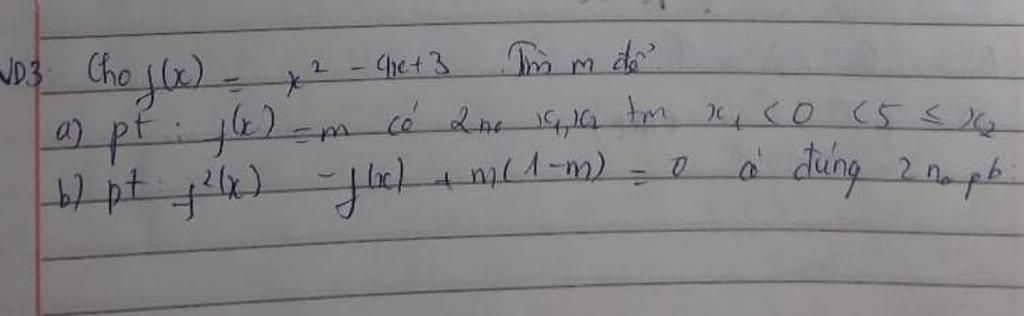 VD3. Cho f(x) = x² - 4x + 3. Tìm m để
a) pt : f(x) = m có 2 no x₁, x₂ tm x₁ < 0 < 5 ≤ x₂
b) pt : f²(x) - f(x) + m(1-m) = 0 có đúng 2 no pb.